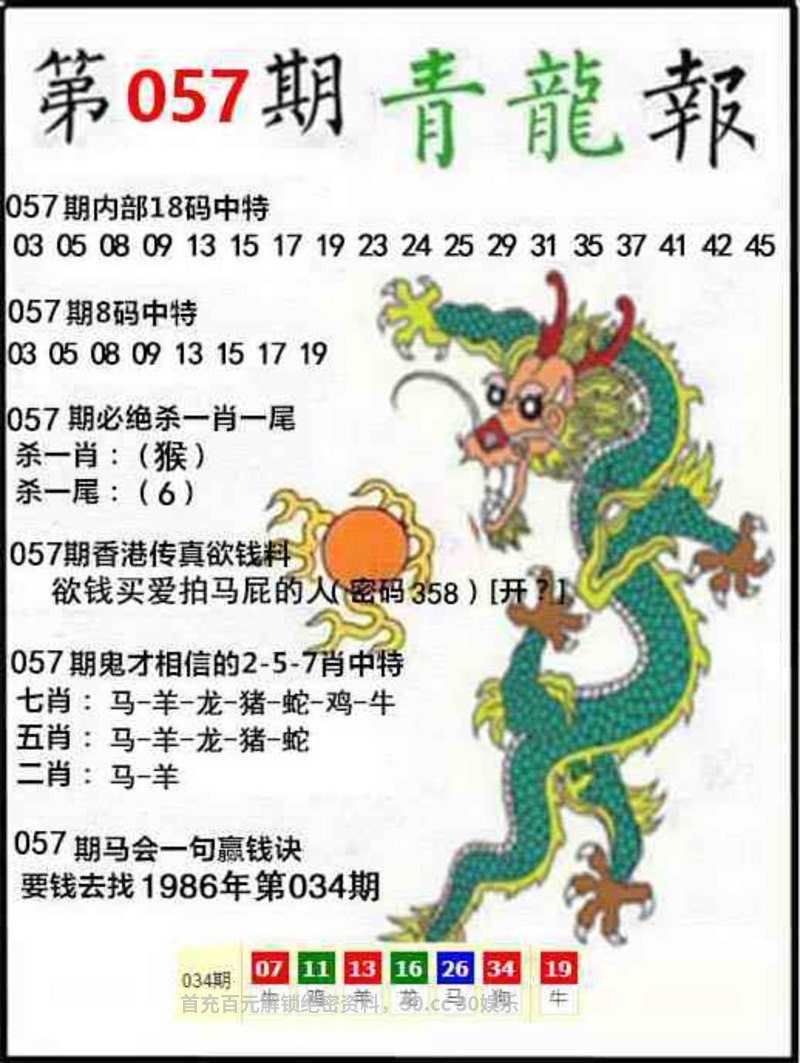 第057期青龍報
057期内部18码中特
03 05 08 09 13 15 17 19 23 24 25 29 31 35 37 41 42 45
057期8码中特
03 05 08 09 13 15 17 19
057期必绝杀一肖一尾
杀一肖：（猴）
杀一尾：（6）
057期香港传真欲钱料
欲钱买爱拍马屁的人（密码358）[开？]
057期鬼才相信的2-5-7肖中特
七肖：马-羊-龙-猪-蛇-鸡-牛
五肖：马-羊-龙-猪-蛇
二肖：马-羊
057期马会一句赢钱诀
要钱去找1986年第034期
034期 07 11 13 16 26 34 19
牛 鸡 羊 龙 马 狗 牛
首充百元解锁绝密资料，30.cc 30娱乐